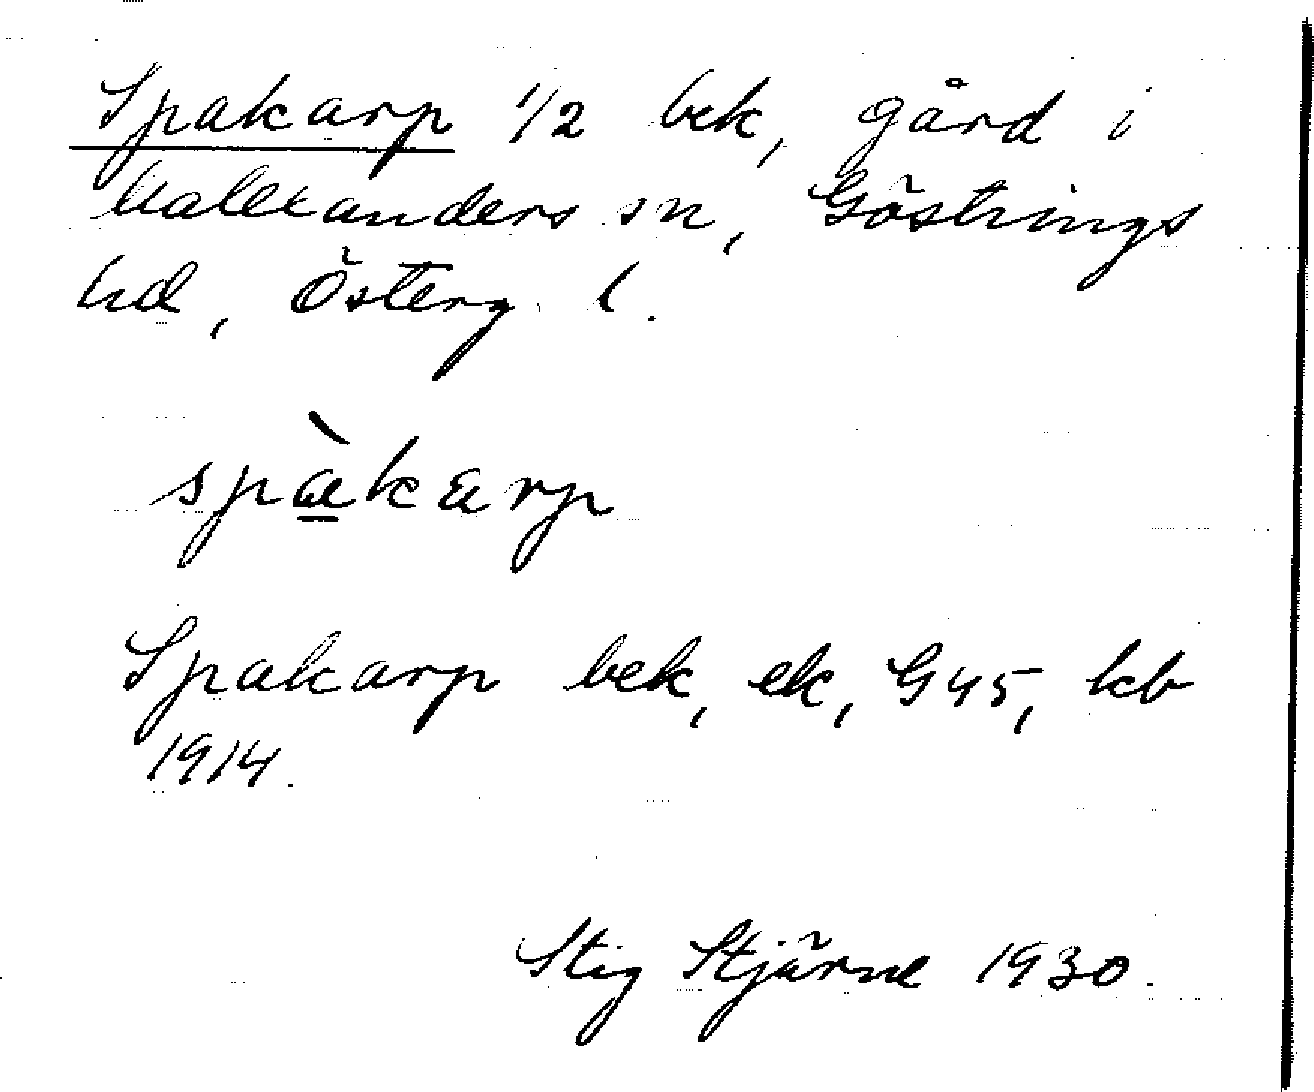 Spakarp 1/2 bek, gård i
Malexanders sn, Göstrings
hd, Österg. l.
spàkarp
Spakarp bek, ek, G45, kb
1914.
Stig Stjärne 1930.